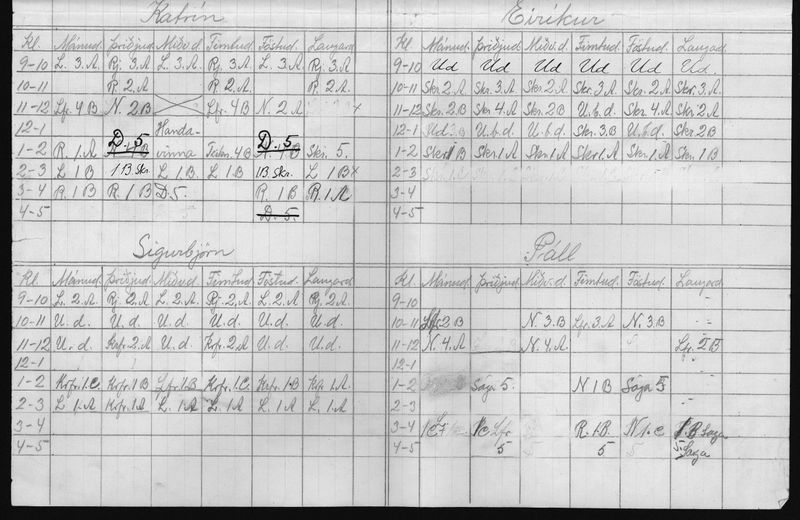 Katrín
Kl. Mánud. Þriðjud. Miðv.d. Fimtud. Föstud. Laugard.
9-10 L. 3.A Rj. 3.A L. 3.A Rj. 3.A L. 3.A Rj. 3.A
10-11 R 2.A R 2.A R 2.A
11-12 Lfr. 4B N. 2B Lfr. 4B N. 2.A x
12-1 Handa-
D. 5 D. 5
1-2 R. 1.A vinna 4B 1B Skr. 5.
2-3 L 1B 1B Skr. L 1B L 1B 1B. Skr. L 1B x
3-4 R 1B R. 1B D.5 R. 1B R. 1A
4-5 D. 5.
Eiríkur
Kl. Mánud. Þriðjud. Miðv.d. Fimtud. Föstud. Laugard.
9-10 Ud Ud Ud Ud Ud Ud.
10-11 Skr. 2.A Skr. 3.A Skr. 2.A Skr. 3.A Skr. 2.A Skr. 3.A
11-12 Skr. 2B Skr. 4.A Skr. 2B U.b.d Skr. 4.A Skr. 2A
12-1 U.b.d U.b.d Skr. 3.B U.b.d. Skr. 2B
1-2 Skr 1B Skr. 1.A Skr 1A Skr 1.A Skr. 1.A Skr. 1B
2-3
3-4
4-5
Sigurbjörn
Kl. Mánud. Þriðjud. Miðv.d. Fimtud. Föstud. Laugard.
9-10 L. 2.A Rj. 2.A L. 2.A Rj. 2.A L. 2.A Rj. 2.A.
10-11 U. d. U. d. U. d. U. d. U. d. U. d.
11-12 U. d. Krfr. 2.A U. d. Krfr. 2.A U. d. U. d.
12-1
1-2 Krfr. 1.C. Krfr. 1B Lfr. 1.B Krfr. 1.C. Krfr. 1.B Kfr. 1.A.
2-3 L 1.A Krfr. 1.A L. 1.A L. 1.A L. 1.A L. 1.A
3-4
4-5
Páll
Kl. Mánud. Þriðjud. Miðv.d. Fimtud. Föstud. Laugard.
9-10
10-11 Lfr. 2B N. 3.B Lfr. 3.A N. 3.B
11-12 N. 4.A N. 4.A. Lfr. 2B
12-1
1-2 Saga 5. N 1B Saga 5
2-3
3-4 1C Lfr. R. 1.B. N 1.C 1.B Saga
4-5 5 5 5. Saga